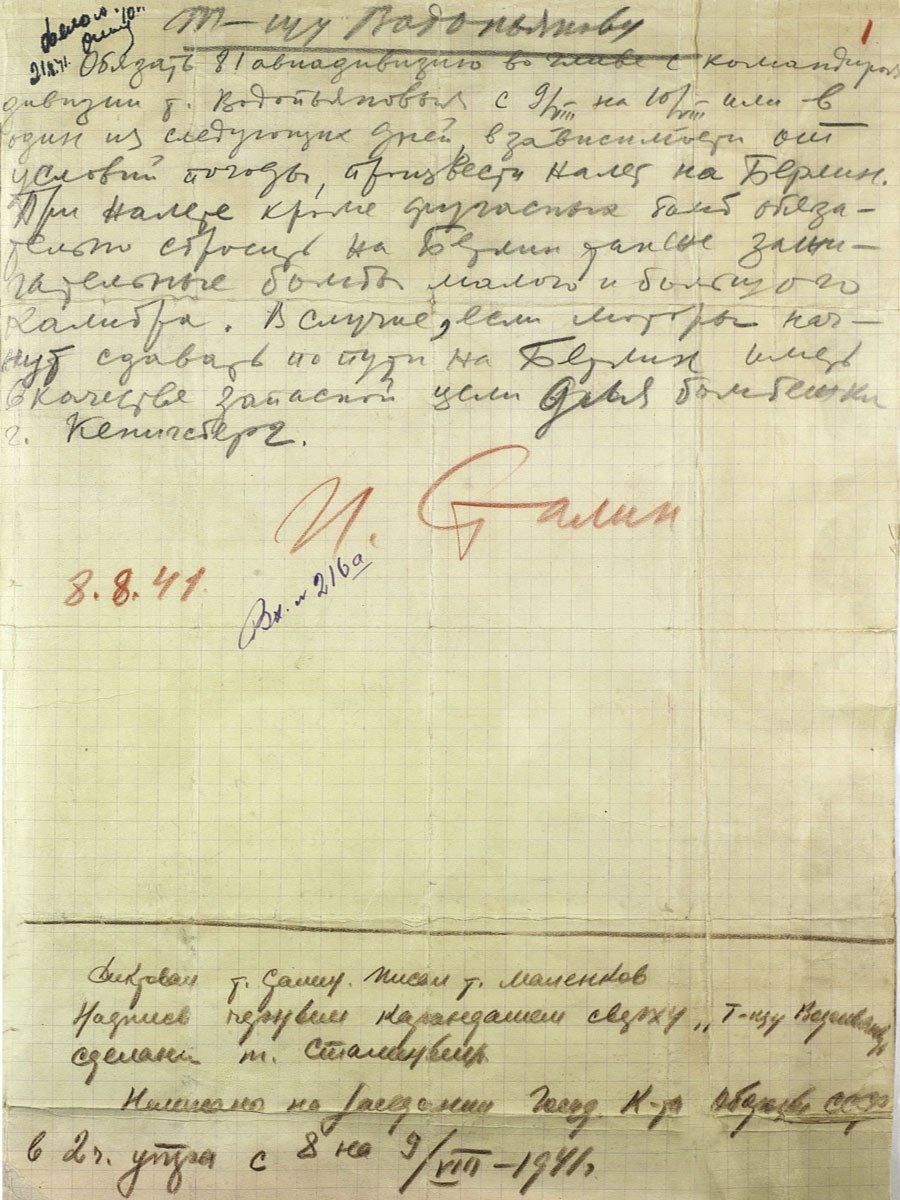 Т-щу Водопьянову
1
Обязать 81 авиадивизию во главе с командиром
дивизии т. Водопьяновым с 9/VIII на 10/VIII или в
один из следующих дней, в зависимости от
условий погоды, произвести налет на Берлин.
При налете кроме фугасных бомб обяза-
тельно сбросить на Берлин также зажи-
гательные бомбы малого и большого
калибра. В случае, если моторы нач-
нут сдавать по пути на Берлин иметь
в качестве запасной цели для бомбежки
г. Кенигсберг.
И. Сталин
8.8.41
Вх. № 216а
Диктовал т. Сталин. Писал т. Маленков
Надпись черным карандашом сверху „Т-щу Водопьянову
сделана т. Сталиным
Написано на заседании Госуд. К-та Обороны СССР
в 2 ч. утра с 8 на 9/VIII-1941 г.